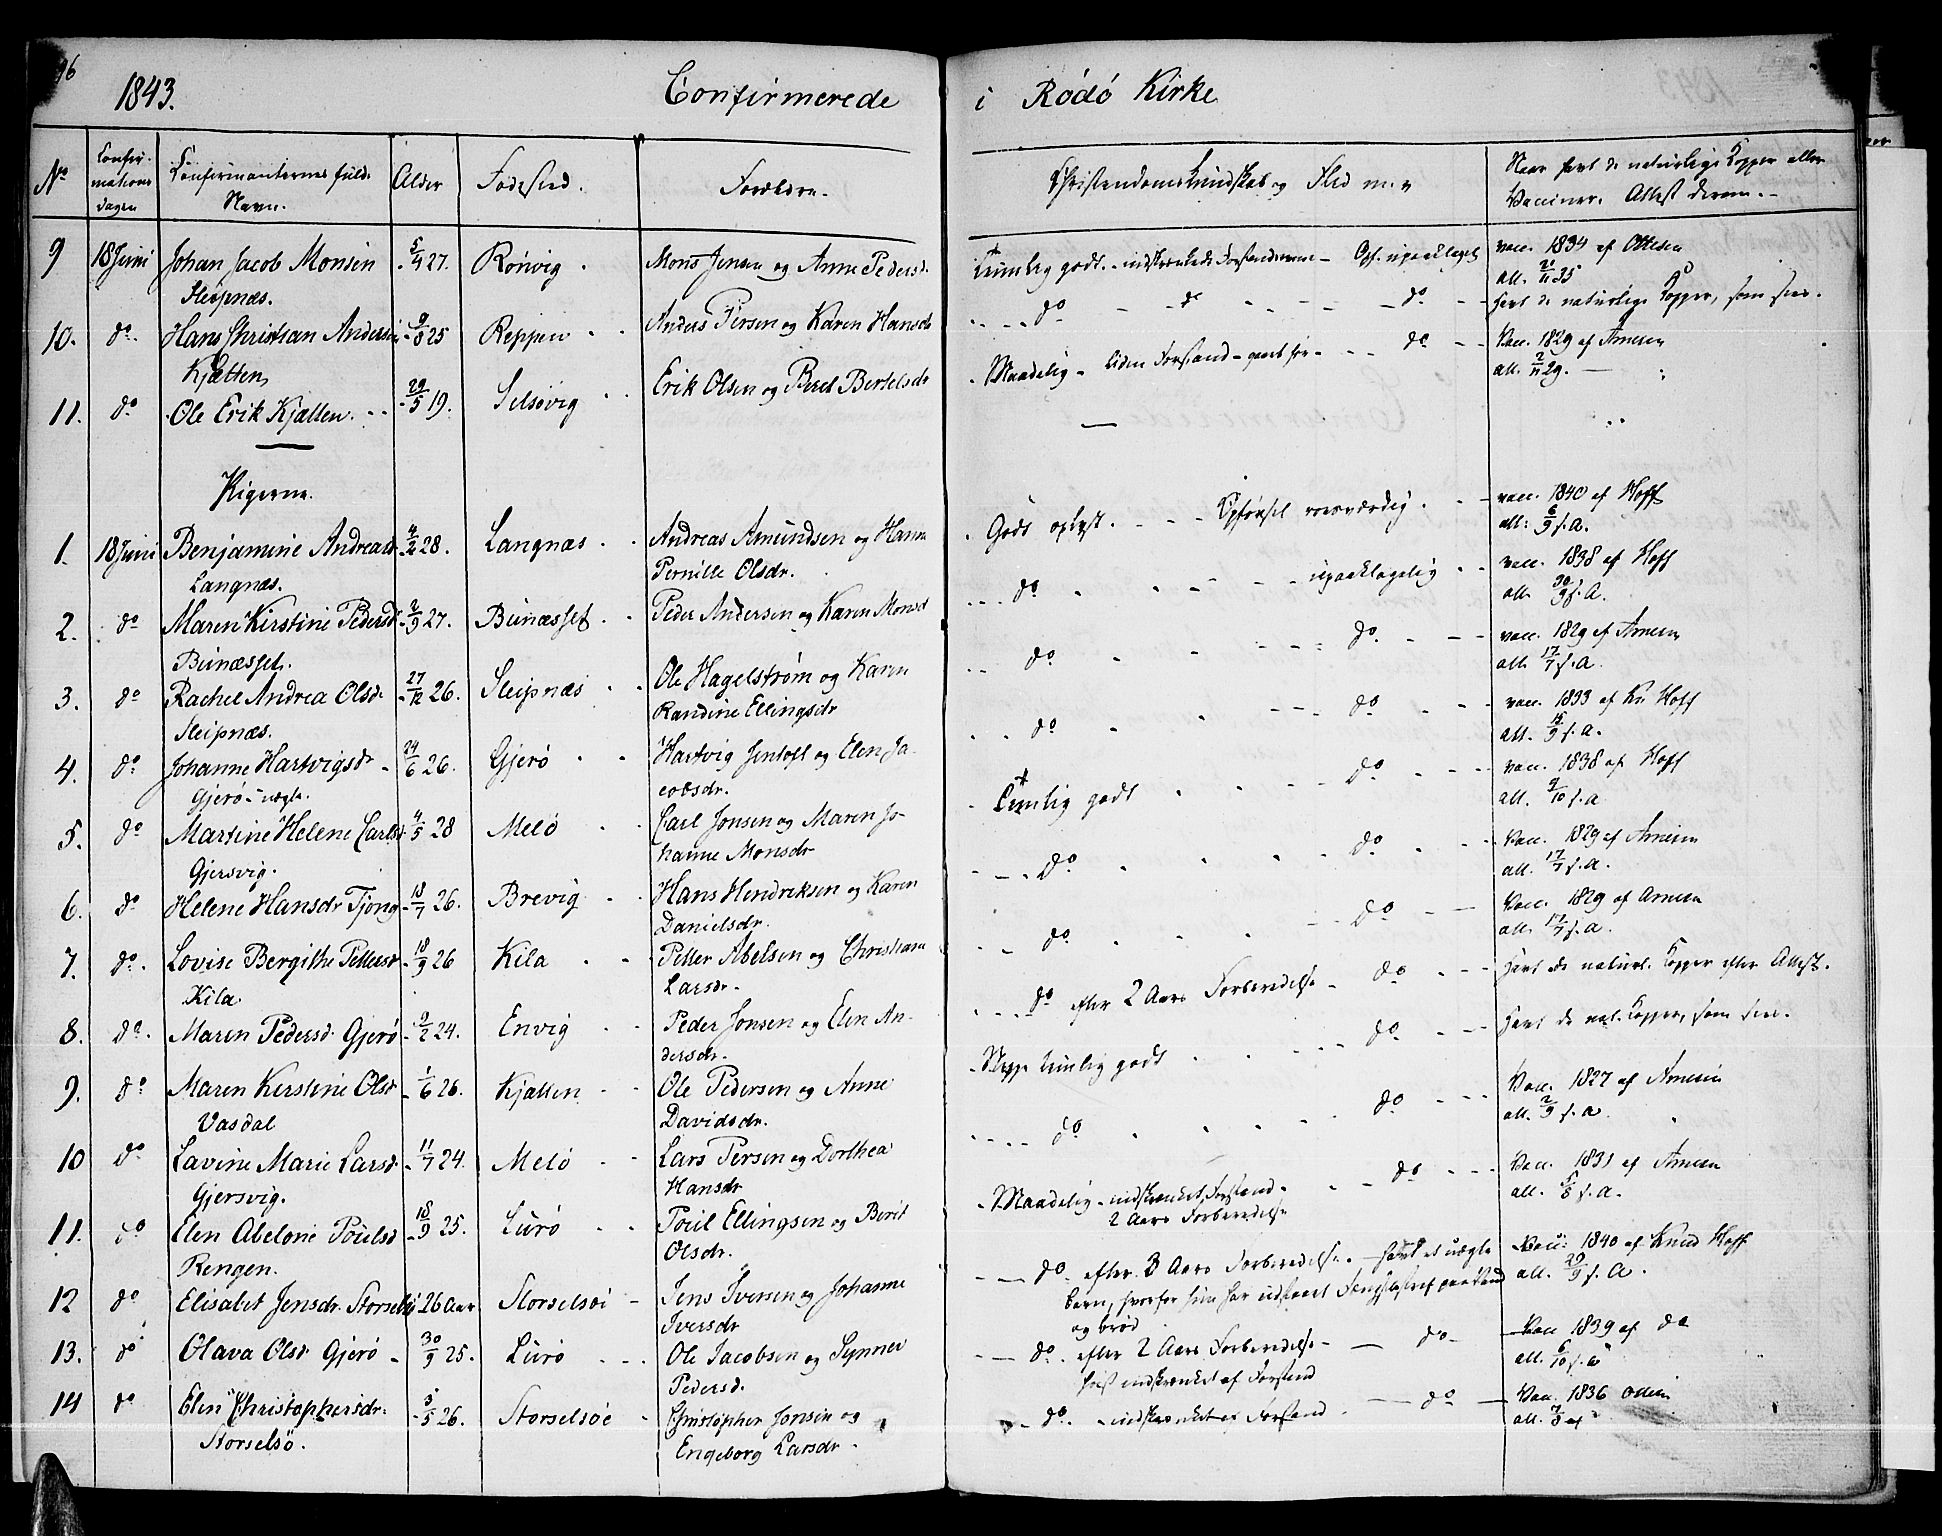 1843. Confirmerede i Rødø Kirke
No Confir- Confirmanternes fulde Alder Fødested. Forældre. Christendomskundskab og Flid m. v Naar havt de naturlige Kopper eller
mations dagen Navn. Vacciner. Attest derom.
9 18 Juni Johan Jacob Monsen 5/4 27. Rønvig Mons Jensen og Anne Pedersd. Temlig godt - indskrænkede Forstandsevne - Opf. upaaklaget vacc. 1834 af Ottesen
Sleipnæs. att. 20/11 35
10. do. Hans Christian Andersen 9/8 25 Reppen Anders Persen og Karen Hansdr do do do havt de naturlige Kopper, som sees.
Kjætten
11. do Ole Erik Kjætten 29/5 19. Selsøvig Erik Olsen og Beret Bertelsdr Maadelig - liden Forstand - do Vacc. 1829 af Arnesen
att. 2/11 29.
Pigerne.
1. 18 Juni Benjamine Andreasdr 4/2 28. Langnæs Andreas Amundsen og Hanna Godt oplyst. Opførsel roesværdig. vacc. 1840 af Hoff
Langnæs. Pernille Olsdr. att: 6/9 s.a.
2. do Maren Kirstine Pedersdr 2/9 27. Bunæsset Peder Andersen og Karen Monsd do upaaklagelig vacc. 1838 af Hoff
Bunæsset. att. 30/9 s.A.
3. do Rachel Andrea Olsd. 27/12 26. Sleipnæs Ole Hagelstrøm og Karen do do vacc. 1829 af Arnesen
Sleipnæs. Randine Ellingsdr att. 17/7 s.a.
4. do Johanne Hartvigsdr 24/6 26. Gjerø Hartvig Jentoft og Elen Ja- do do vacc. 1833 af Kn Hoff
Gjerø - uægte. cobsdr. att. 15/9 s.a.
5. do Martine Helene Carlsd 4/5 28 Melø Carl Jonsen og Maren Jo- Temlig godt do vacc. 1838 af Hoff
Gjersvig. hanne Monsdr att. 9/10 s.a
6. do Helene Hansdr Tjong 18/7 26. Brevig Hans Hendriksen og Karen do do Vacc. 1829 af Arnesen
Danielsdr. att. 17/7 s.a.
7. do. Lovise Bergithe Pettersd 18/9 26 Kila Petter Abelsen og Christiane do do Vacc. 1829 af Arnesen
Kila. Larsdr. att. 17/7 s.a.
8. do. Maren Pedersd. Gjerø 9/2 24. Envig Peder Jonsen og Elen An- do efter 2 Aars Forberedelse do havt de naturl. Kopper efter Attest.
dersdr.
9. do Maren Kerstine Olsd 1/6 26. Kjætten Ole Pedersen og Anne Neppe temlig godt do havt de nat. Kopper, som sees.
Vasdal Davidsdr.
10 do Lavine Marie Larsd. 11/7 24. Melø Lars Persen og Dorthea do do Vacc. 1827 af Arnesen
Gjersvig. Hansdr att. 2/9 s.a.
11. do Elen Abelone Poulsd 18/9 25. Lurø Poul Ellingsen og Berit Maadelig - indskrænket Forstand do Vacc. 1831 af Arnesen
Rengen. Olsdr. 2 Aars Forberedelse att. 5/8 s.a.
12 do Elisabet Jensdr. Storselsø 26 Aar Storselsøe Jens Iversen og Johanne do. efter 3 Aars Forberedelse. havt et uægte Vacc: 1840 af Knud Hoff
Iversdr barn, hvorfor hun har udstaaet Fængselstraf paa Vand att. 29/9 s.A.
og brød
13. do Olava Olsd Gjerø 30/9 25. Lurø Ole Jacobsen og Synnev do. efter 2 Aars Forberedelse do Vacc 1839 af do
Pedersd. indskrænket af Forstand att. 6/10 s.a
14 do Elen Christophersdr. 3/5 26. Storselsøe Christopher Jonsen og do. indskrænket af Forstand do Vacc. 1836 Ottesen
Storselsø. Engeborg Larsdr. att.